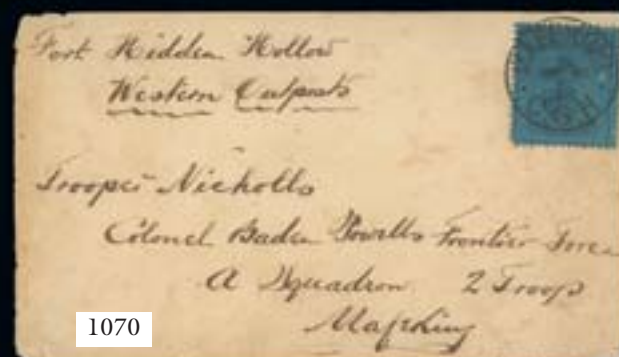 Fort Hidden Hollow
Western Outposts
Trooper Nicholls
Colonel Baden Powells Frontier Force
A Squadron 2 Troop
Mafeking
1070